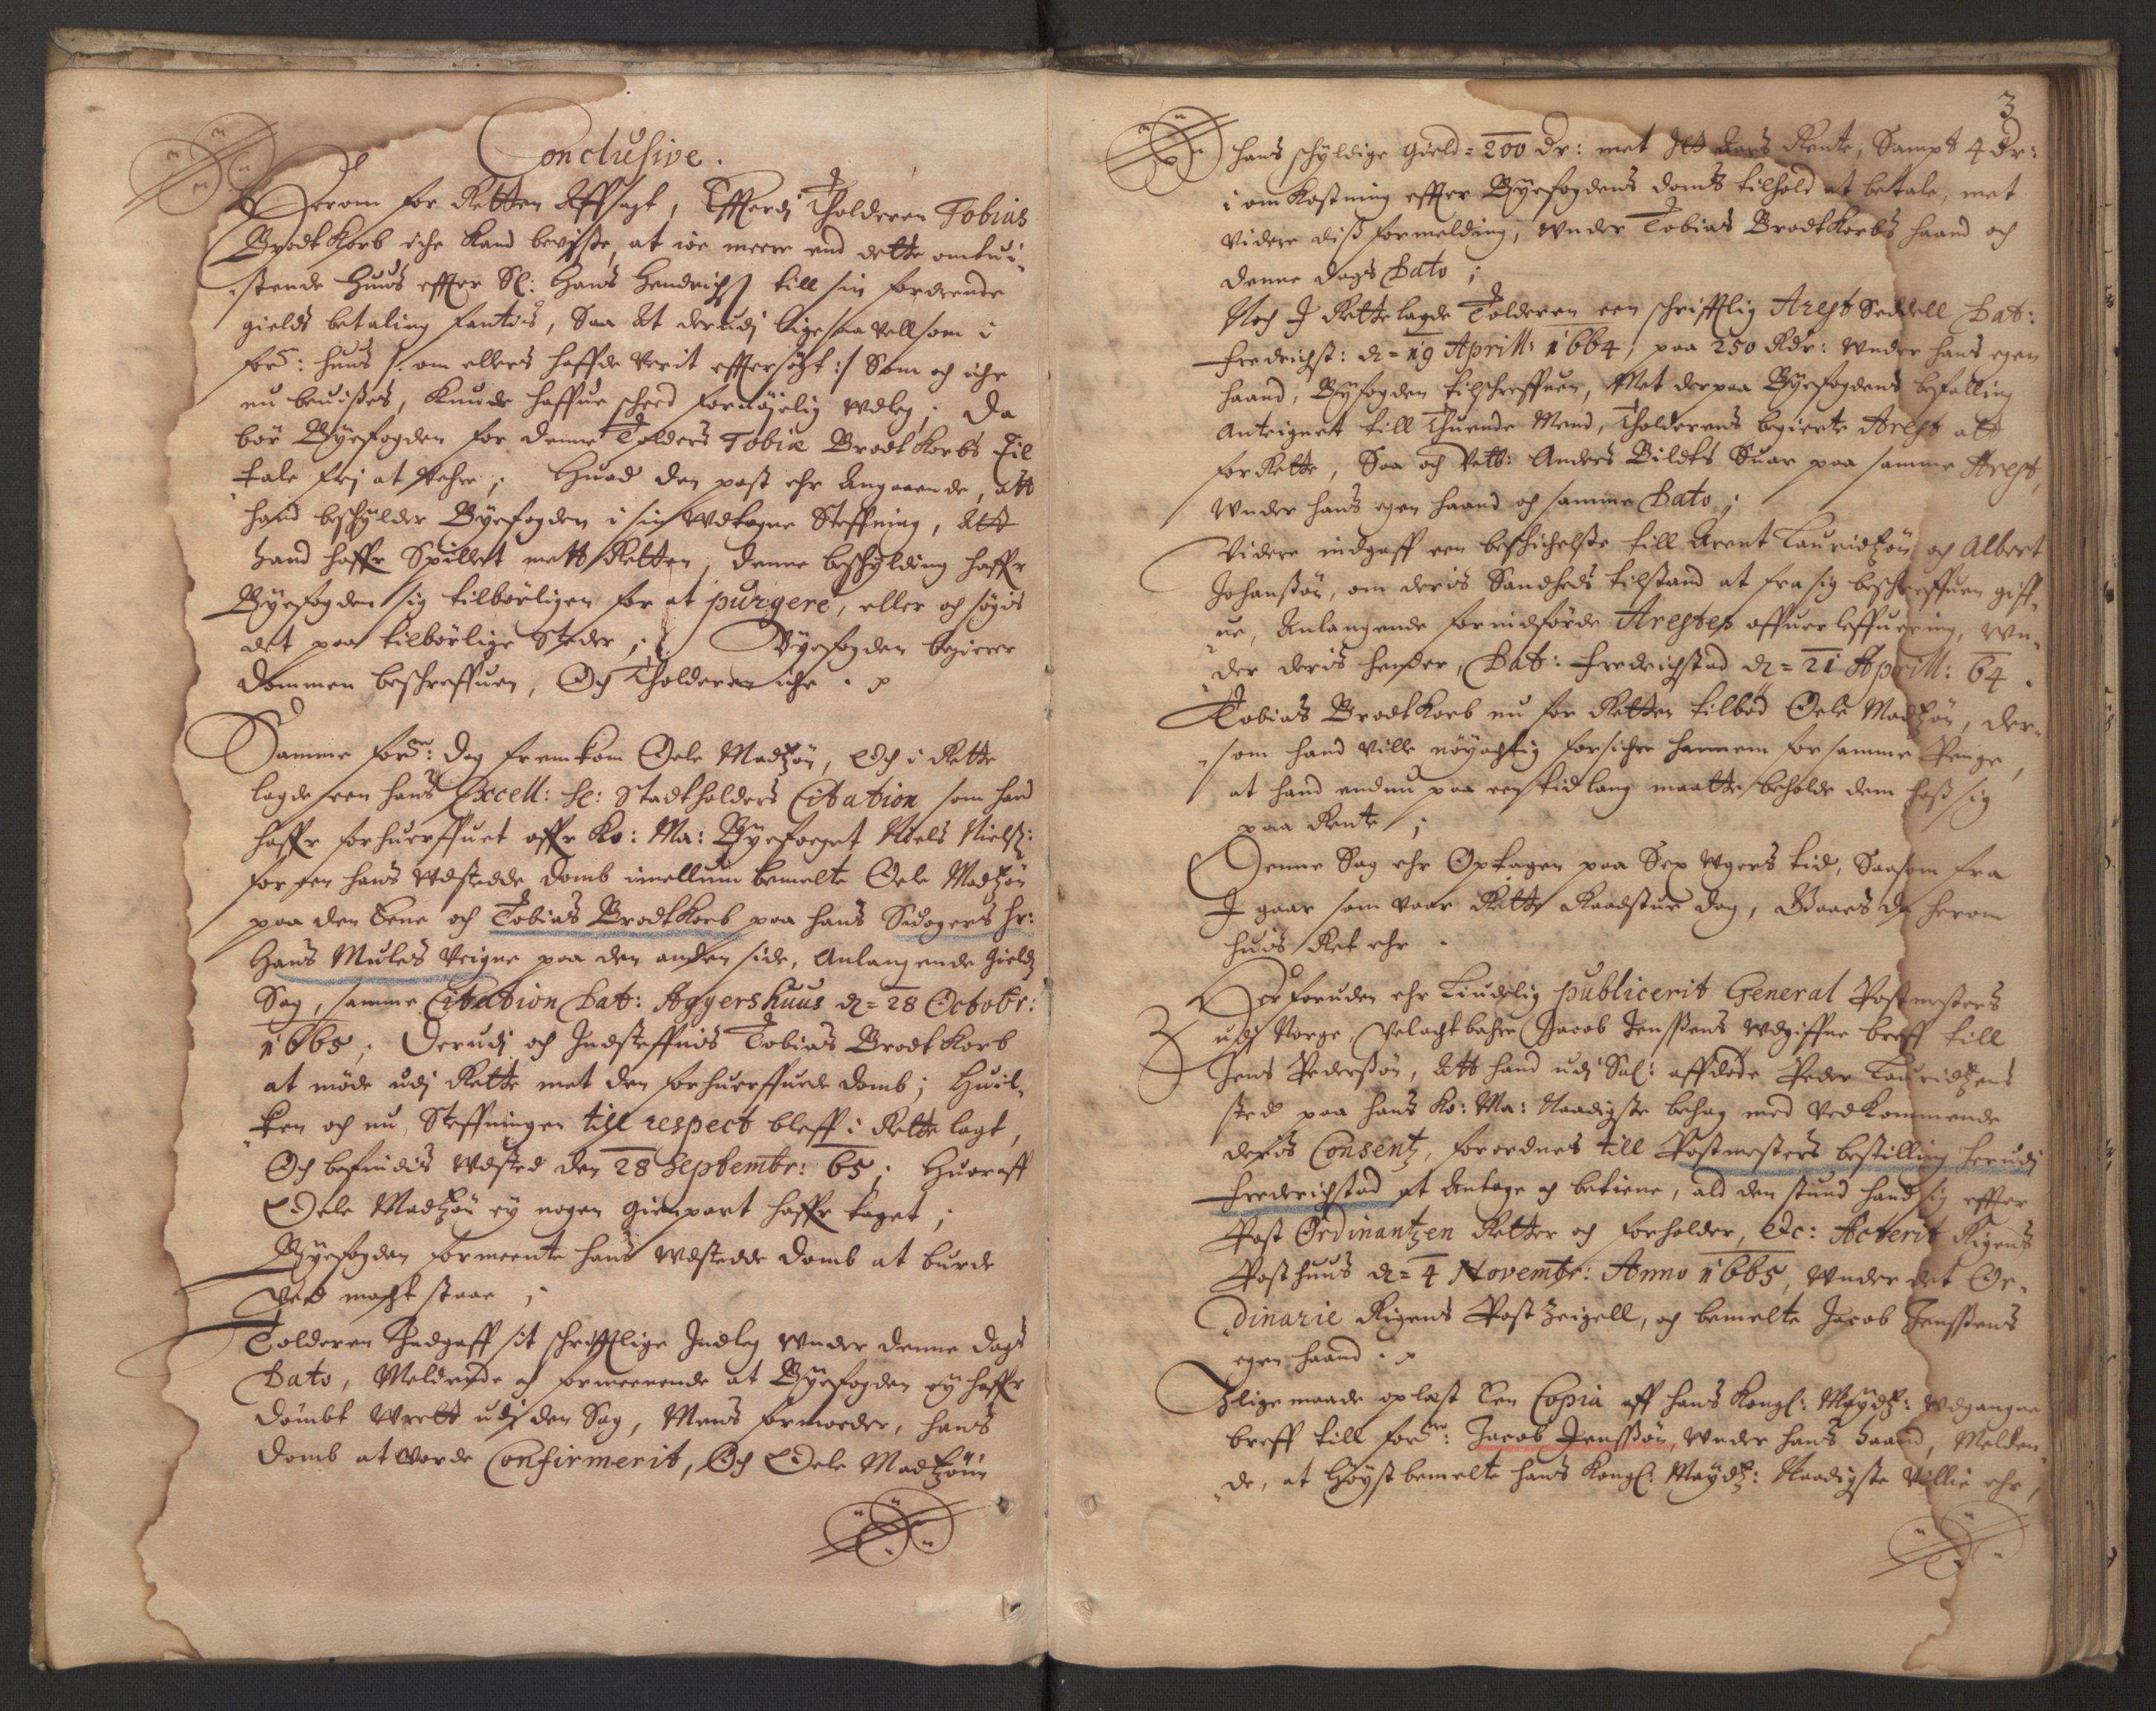 Conclusive.
Herom for Retten Affsagt, Effterdj Tholderen Tobias
Brodtkorb iche kand bevisse, at ioe meere end dette omtui¬
stende Huus effter Sl: Hans Hendrichs: till sin fordrende
gields betaling fantis, Saa At derudj ligesaa vell som i
forne: huus /: om ellers haffde verit effttersögt :/ Som och iche
nu beuisses, kunde haffue scheed fornöjelig Wdleg; Da
bör Byefogden for denne Tolders Tobiæ Brodtkorbs til
tale frj at vehre; Huad den post ehr Angaaende, att
hand beschylder Byefogden i sin Wdtagne Steffning, Att
hand haffr Spillet mett Retten, denne beschylding haffr
Byefogden sig tilbörligen for at purgere, eller och søgis
det paa tilbörlige Steder; Byefogden begierer
Dommen beschreffuen, Och Tholderen iche.
Samme forne: Dag fremkom Oele Madtzön, Och i Rette
lagde een hans Excell: He: Stadtholders Citation som hand
haffr forhuerffuet offr Ko: Ma: Byefoeget Niels Nielss:
for een hans Wdstedde domb imellum bemelte Oele Madtzön
paa den Eene och Tobias Brodtkorb paa hans Suogers Hr:
Hans Mules Veigne paa den anden side, Anlangende gields
Sag, samme Citation Dat: Aggershuus d= 28 Octobr:
1665; Derudj och Indsteffnis Tobias Brodtkorb
at møde udj Rette met den forhuerffuede domb; Huil¬
ken och nu, Steffningen till respect bleff i Rette lagt,
Och befindis Wdsted den 28 Septembr: 65; Huoraff
Oele Madtzön ey nogen gienpart haffr taget;
Byefogden formeente hans Wdstedde domb at burde
ved macht staae;
Tolderen Indgaff sit schrifftlige Indleg Wnder denne dags
Dato, Meldende och formeenende at Byefogden ey haffr
dömbt Wrett udj den Sag, Mens formoeder, hans
domb at vorde Confirmerit, Och Oele Madtzönn
3
hans schyldige gield = 200 Dr: met Rente, Sampt 4 dr:
i omkostning effter Byefogdens domb tilhold at betale, met
videre diss formelding, Wnder Tobias Brodtkorbs haand och
denne dags Dato;
Noch I Rette lagde Tolderen een schrifftlig Arest Seddell Dat:
Fredrichst: d= 19 Aprill: 1664, paa 250 Rdr: Wnder hans egen
haand, Byfogden tilschreffuen, Met derpaa Byefogdens befalling
Anteignet till Thuende Mend, Tholderens begierte Arest att
forrette, Saa och Vetb: Anders Bildts Suar paa samme Arest,
Wnder hans egen haand och samme Dato;
Videre indgaff een beschichelsse till Arent Lauridtzön och Albert
Johanssön, om deris Sandheds tilstand at fra sig beschreffuen giff¬
ue, Anlangende formidförde Arestes offuerleffuering, wn¬
der deris hender, Dat: Fredrichstad d= 21 Aprill: 64.
Tobias Brodtkorb nu for Retten tilböd Oele Madtzön, der¬
som hand ville nöyachtig forsichre hannem for samme Penge,
at hand endnu paa een tid lang maatte beholde dem hoss sig
paa Rente;
Denne Sag ehr Optagen paa Sex Ugers tid, Saasom fra
I gaar som vaar Rette Raadstue dag, da herom
huis Ret ehr.
Der foruden ehr liudelig publicerit General Postmesters
udj Norge, Velachtbahre Jacob Jenssens Wdgiffne breff till
Jens Pederssön, Att hand udj Sal: affdöde Peder Lauridtzens
sted paa hans Ko: Ma: Naadigste behag med Vedkommende
deris Consentz, forordnes till Postmesters bestilling herudj
Frederichstad at Antage och betiene, ald den stund hand sig effter
Post Ordinantzen Retter och forholder, etc: Acterit Rigens
Posthuus d= 4 Novembr: Anno 1665, Wnder det Or¬
dinarie Rigens Post Zeigell, och bemelte Jacob Jenssens
egen haand.
I lige maade oplæst Een Copia aff hans Kongl: Maydtz: Wdgangne
breff till forne: Jacob Jenssön, Wnder hans haand, Melden¬
de, at Höystbemelte hans Kongl: Maydtz: Naadigste Villie ehr,